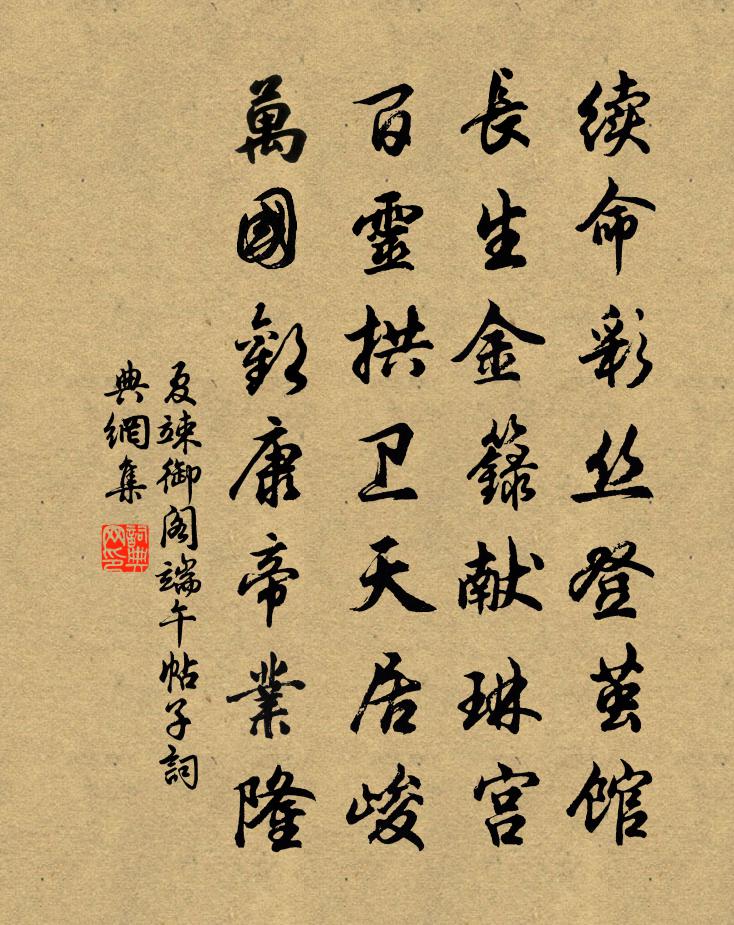 续命彩丝登茧馆
長生金籙献琳宫
百靈拱卫天居峻
萬國歡康帝業隆
夏竦御阁端午帖子詞
典網集
詞典
网印